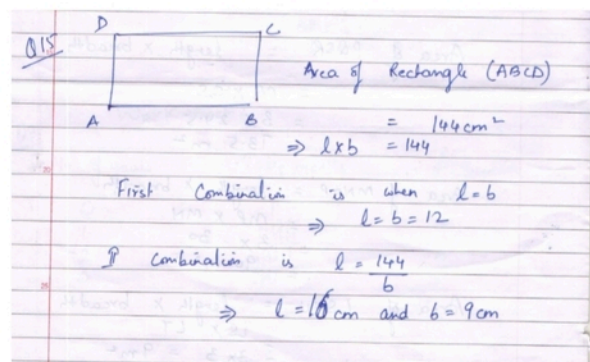 Q15
D C
Area of Rectangle (ABCD)
A B
= 144cm²
⇒ l×b = 144
First Combination is when l=b
⇒ l=b=12
II combination is l = 144/b
⇒ l=16cm and b=9cm